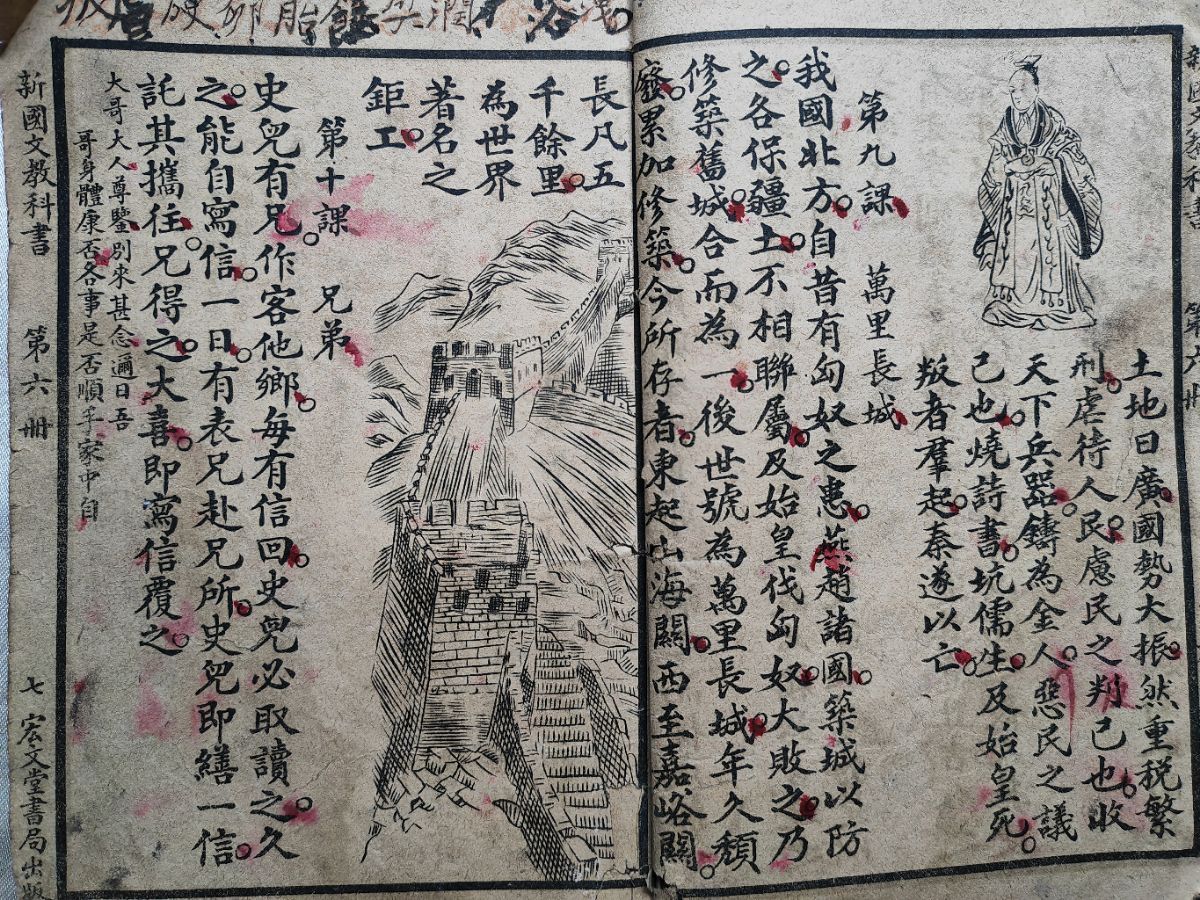 土地日廣。國勢大振。然重税繁
刑。虐待人民。慮民之判己也。收
天下兵器。鑄為金人。惡民之議
己也。燒詩書。坑儒生。及始皇死。
叛者羣起。秦遂以亡。
第九課　萬里長城
我國北方。自昔有匈奴之患。燕趙諸國。築城以防
之。各保疆土。不相聯屬。及始皇伐匈奴。大敗之。乃
修築舊城。合而為一。後世號為萬里長城。年久頹
廢。累加修築。今所存者。東起山海關。西至嘉峪關。
長凡五
千餘里。
為世界
著名之
鉅工。
第十課。兄弟
史兒有兄。作客他鄉。每有信回。史兒必取讀之。久
之。能自寫信。一日。有表兄赴兄所。史兒即繕一信。
託其攜往。兄得之。大喜。即寫信覆之。
大哥大人尊鑒別來甚念邇日吾
哥身體康否各事是否順手家中自
新國文教科書　第六册　七　宏文堂書局出版